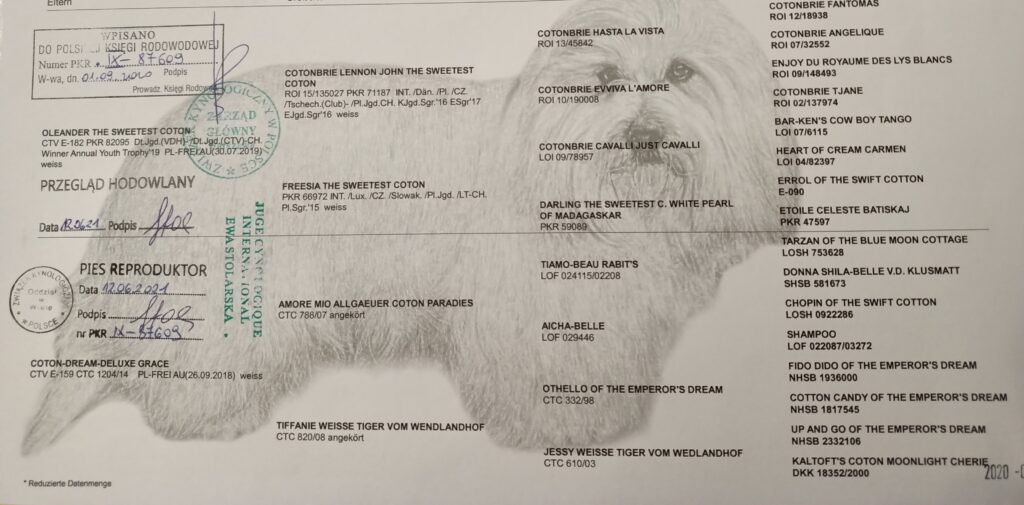 Eltern
WPISANO
DO POLSKIEJ KSIĘGI RODOWODOWEJ
Numer PKR IX-87609
W-wa, dn. 01.09.2020 Podpis
Prowadz. Księgi Rodow
ZWIĄZEK KYNOLOGICZNY W POLSCE
ZARZĄD
GŁÓWNY
OLEANDER THE SWEETEST COTON
CTV E-182 PKR 82095 Dt.Jgd.(VDH)- /Dt.Jgd.(CTV)-CH.
Winner Annual Youth Trophy'19 PL-FREI AU(30.07.2019)
weiss
PRZEGLĄD HODOWLANY
Data 12.06.21 Podpis
JUGE CYNOLOGIQUE
INTERNATIONAL
EWA STOLARSKA
ZWIĄZEK KYNOLOGICZNY
Oddział
w
W POLSCE
PIES REPRODUKTOR
Data 12.06.2021
Podpis
nr PKR IX-87609
COTON-DREAM-DELUXE GRACE
CTV E-159 CTC 1204/14 PL-FREI AU(26.09.2018) weiss
COTONBRIE LENNON JOHN THE SWEETEST
COTON
ROI 15/135027 PKR 71187 INT. /Dän. /Pl. /CZ.
/Tschech.(Club)- /Pl.Jgd.CH. KJgd.Sgr.'16 ESgr'17
EJgd.Sgr'16 weiss
FREESIA THE SWEETEST COTON
PKR 66972 INT. /Lux. /CZ. /Slowak. /Pl.Jgd. /LT-CH.
Pl.Sgr.'15 weiss
AMORE MIO ALLGAEUER COTON PARADIES
CTC 788/07 angekört
TIFFANIE WEISSE TIGER VOM WENDLANDHOF
CTC 820/08 angekört
COTONBRIE HASTA LA VISTA
ROI 13/45842
COTONBRIE EVVIVA L'AMORE
ROI 10/190008
COTONBRIE CAVALLI JUST CAVALLI
LOI 09/78957
DARLING THE SWEETEST C. WHITE PEARL
OF MADAGASKAR
PKR 59089
TIAMO-BEAU RABIT'S
LOF 024115/02208
AICHA-BELLE
LOF 029446
OTHELLO OF THE EMPEROR'S DREAM
CTC 332/98
JESSY WEISSE TIGER VOM WEDLANDHOF
CTC 610/03
COTONBRIE FANTOMAS
ROI 12/18938
COTONBRIE ANGELIQUE
ROI 07/32552
ENJOY DU ROYAUME DES LYS BLANCS
ROI 09/148493
COTONBRIE TJANE
ROI 02/137974
BAR-KEN'S COW BOY TANGO
LOI 07/6115
HEART OF CREAM CARMEN
LOI 04/82397
ERROL OF THE SWIFT COTTON
E-090
ETOILE CELESTE BATISKAJ
PKR 47597
TARZAN OF THE BLUE MOON COTTAGE
LOSH 753628
DONNA SHILA-BELLE V.D. KLUSMATT
SHSB 581673
CHOPIN OF THE SWIFT COTTON
LOSH 0922286
SHAMPOO
LOF 022087/03272
FIDO DIDO OF THE EMPEROR'S DREAM
NHSB 1936000
COTTON CANDY OF THE EMPEROR'S DREAM
NHSB 1817545
UP AND GO OF THE EMPEROR'S DREAM
NHSB 2332106
KALTOFT'S COTON MOONLIGHT CHERIE
DKK 18352/2000
2020 -0
* Reduzierte Datenmenge